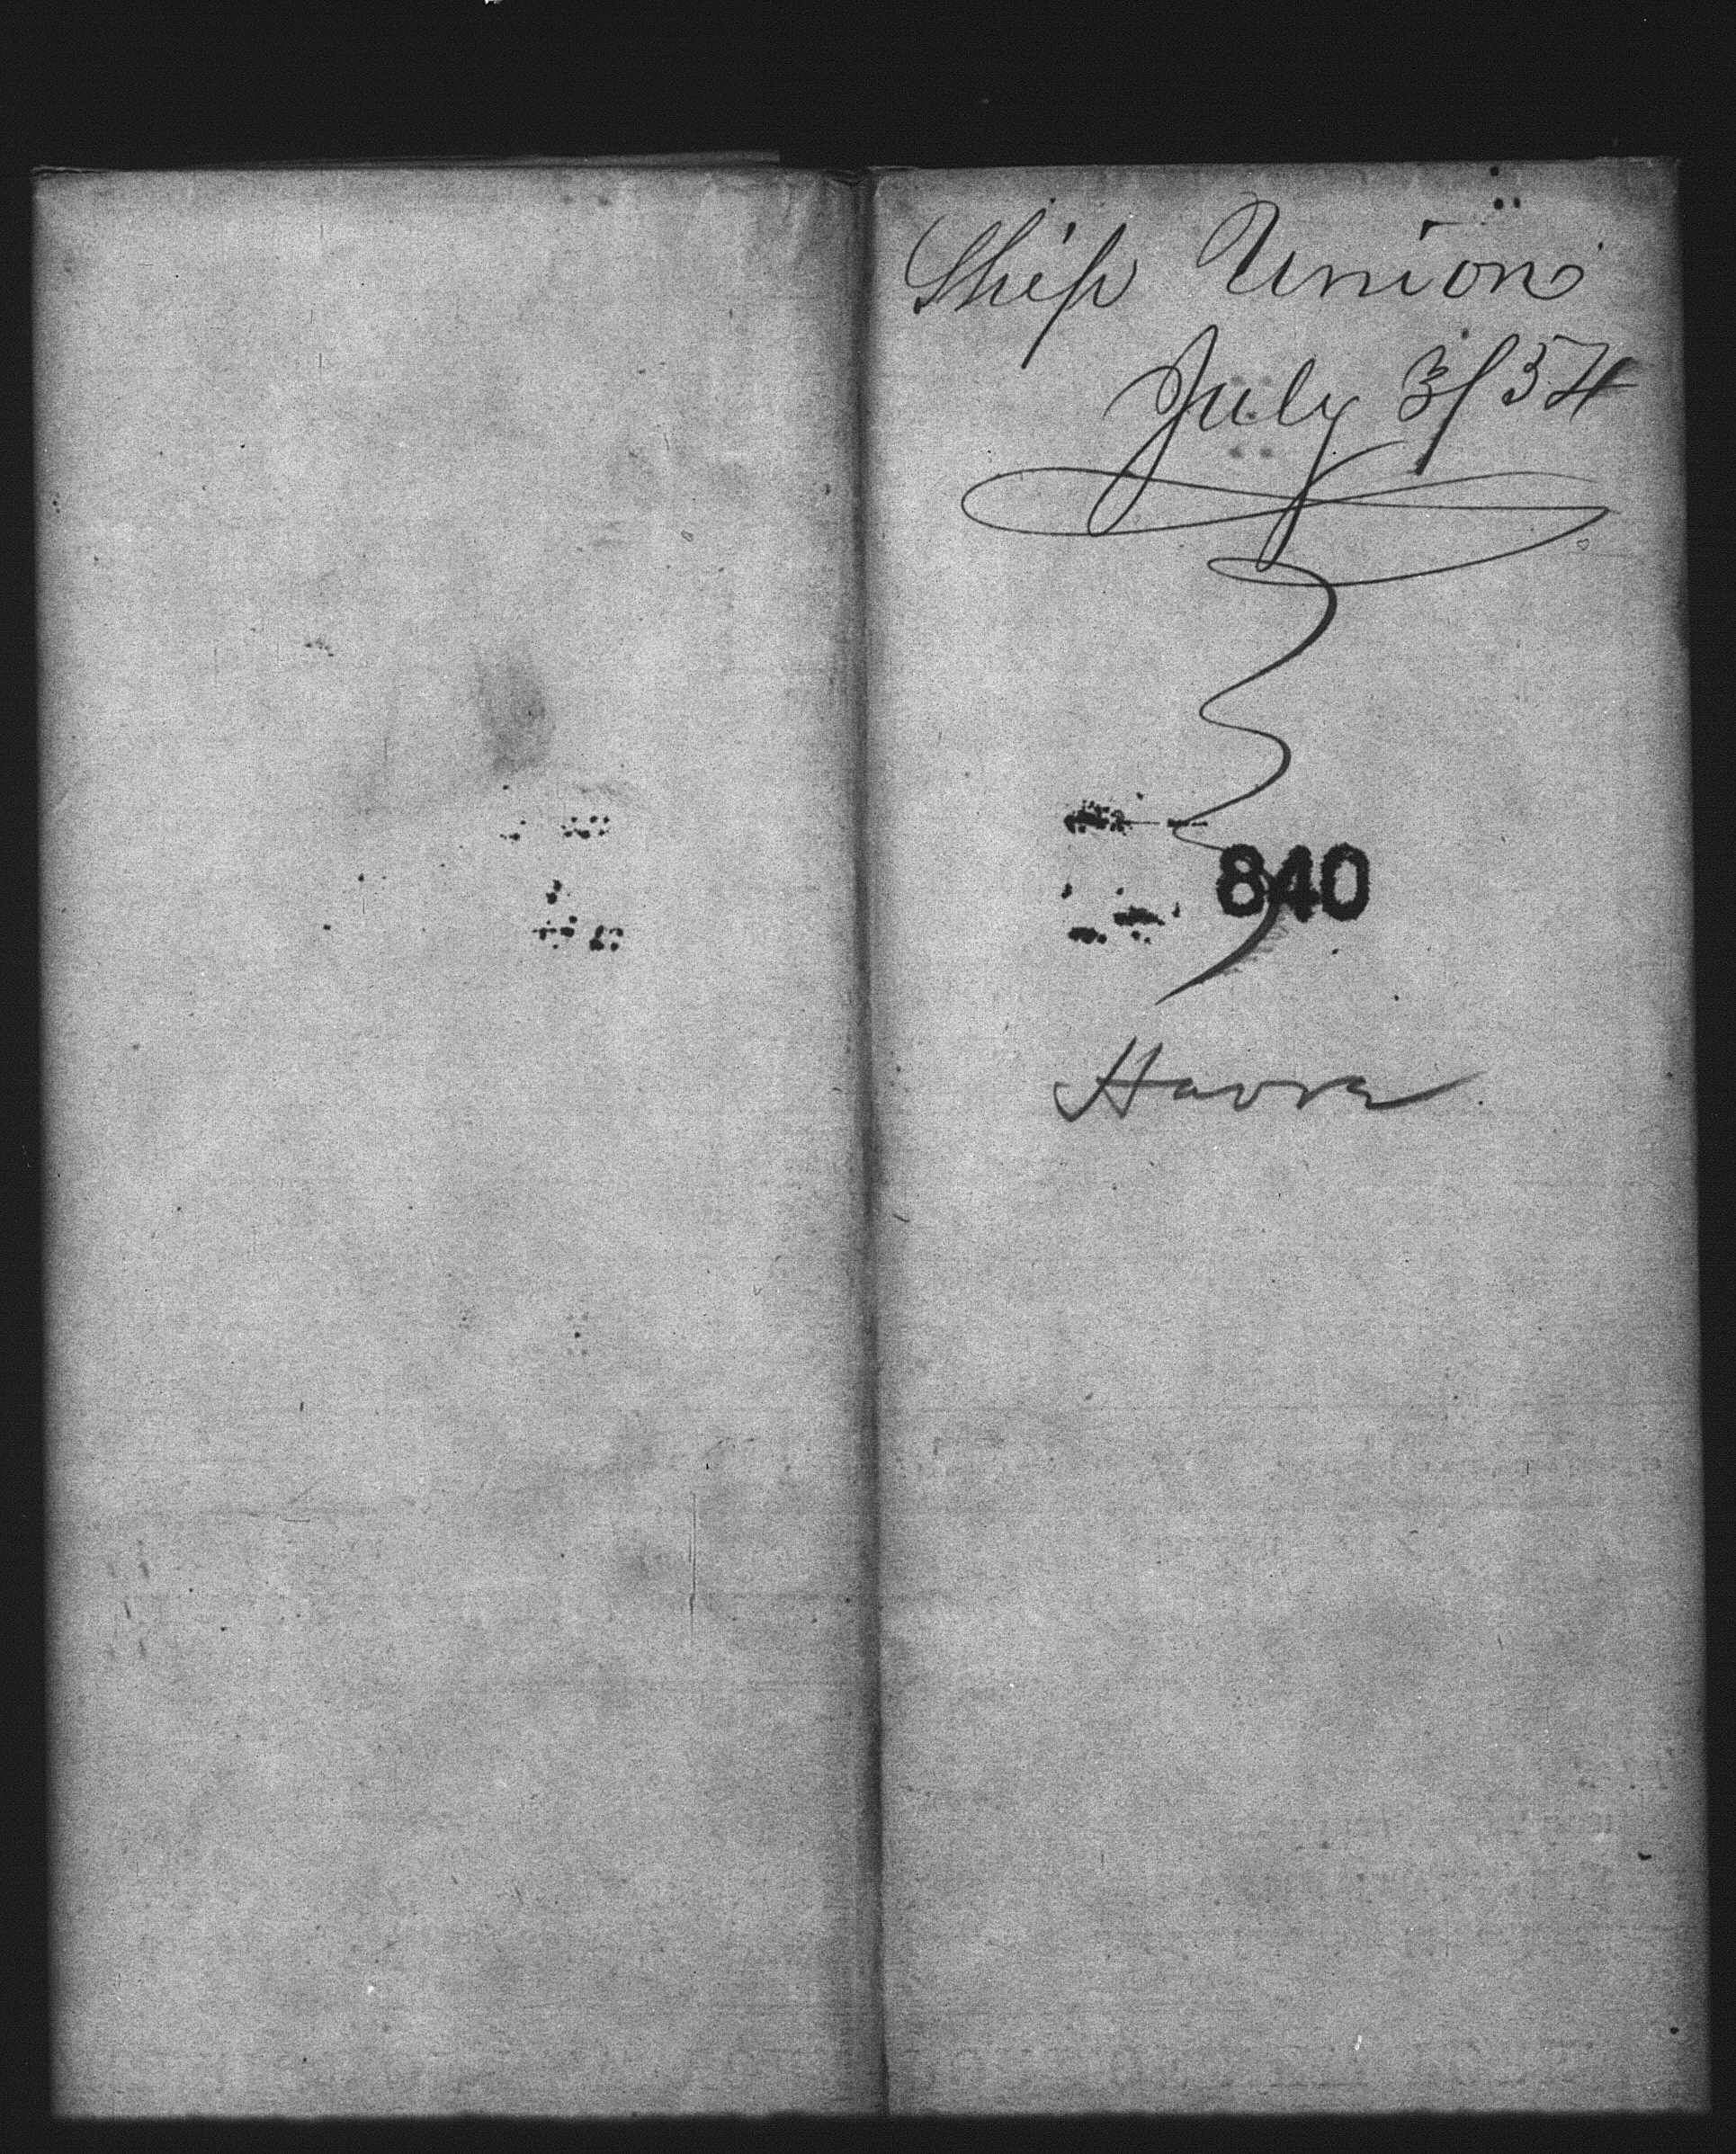 Ship Union
July 3/54
840
Havre